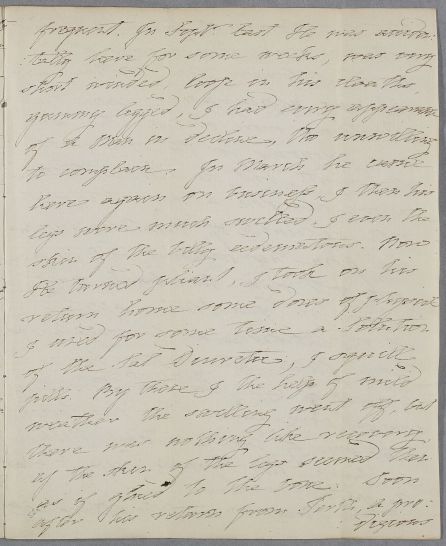 frequent. In Sept. last He was acciden:
:tally here for some weeks, was very
short winded, loose in his cloaths,
legged, & had every appearance
of a Man in decline, tho unwilling
to complain. In March he came
here again on business, & then his
legs were much swelled, & even the
skin of the belly œdematous. Now
He turned pliant, & took on his
return home some doses of physic
& used for some time a Solution
of the Sal Diureticus, & squill
pills. By these & the help of mild
weather the swelling went off, but
there was nothing like recovery,
of the skin of the legs seemed then
as if glued to the bone. Soon
after his return from Perth, a pro:
:digious